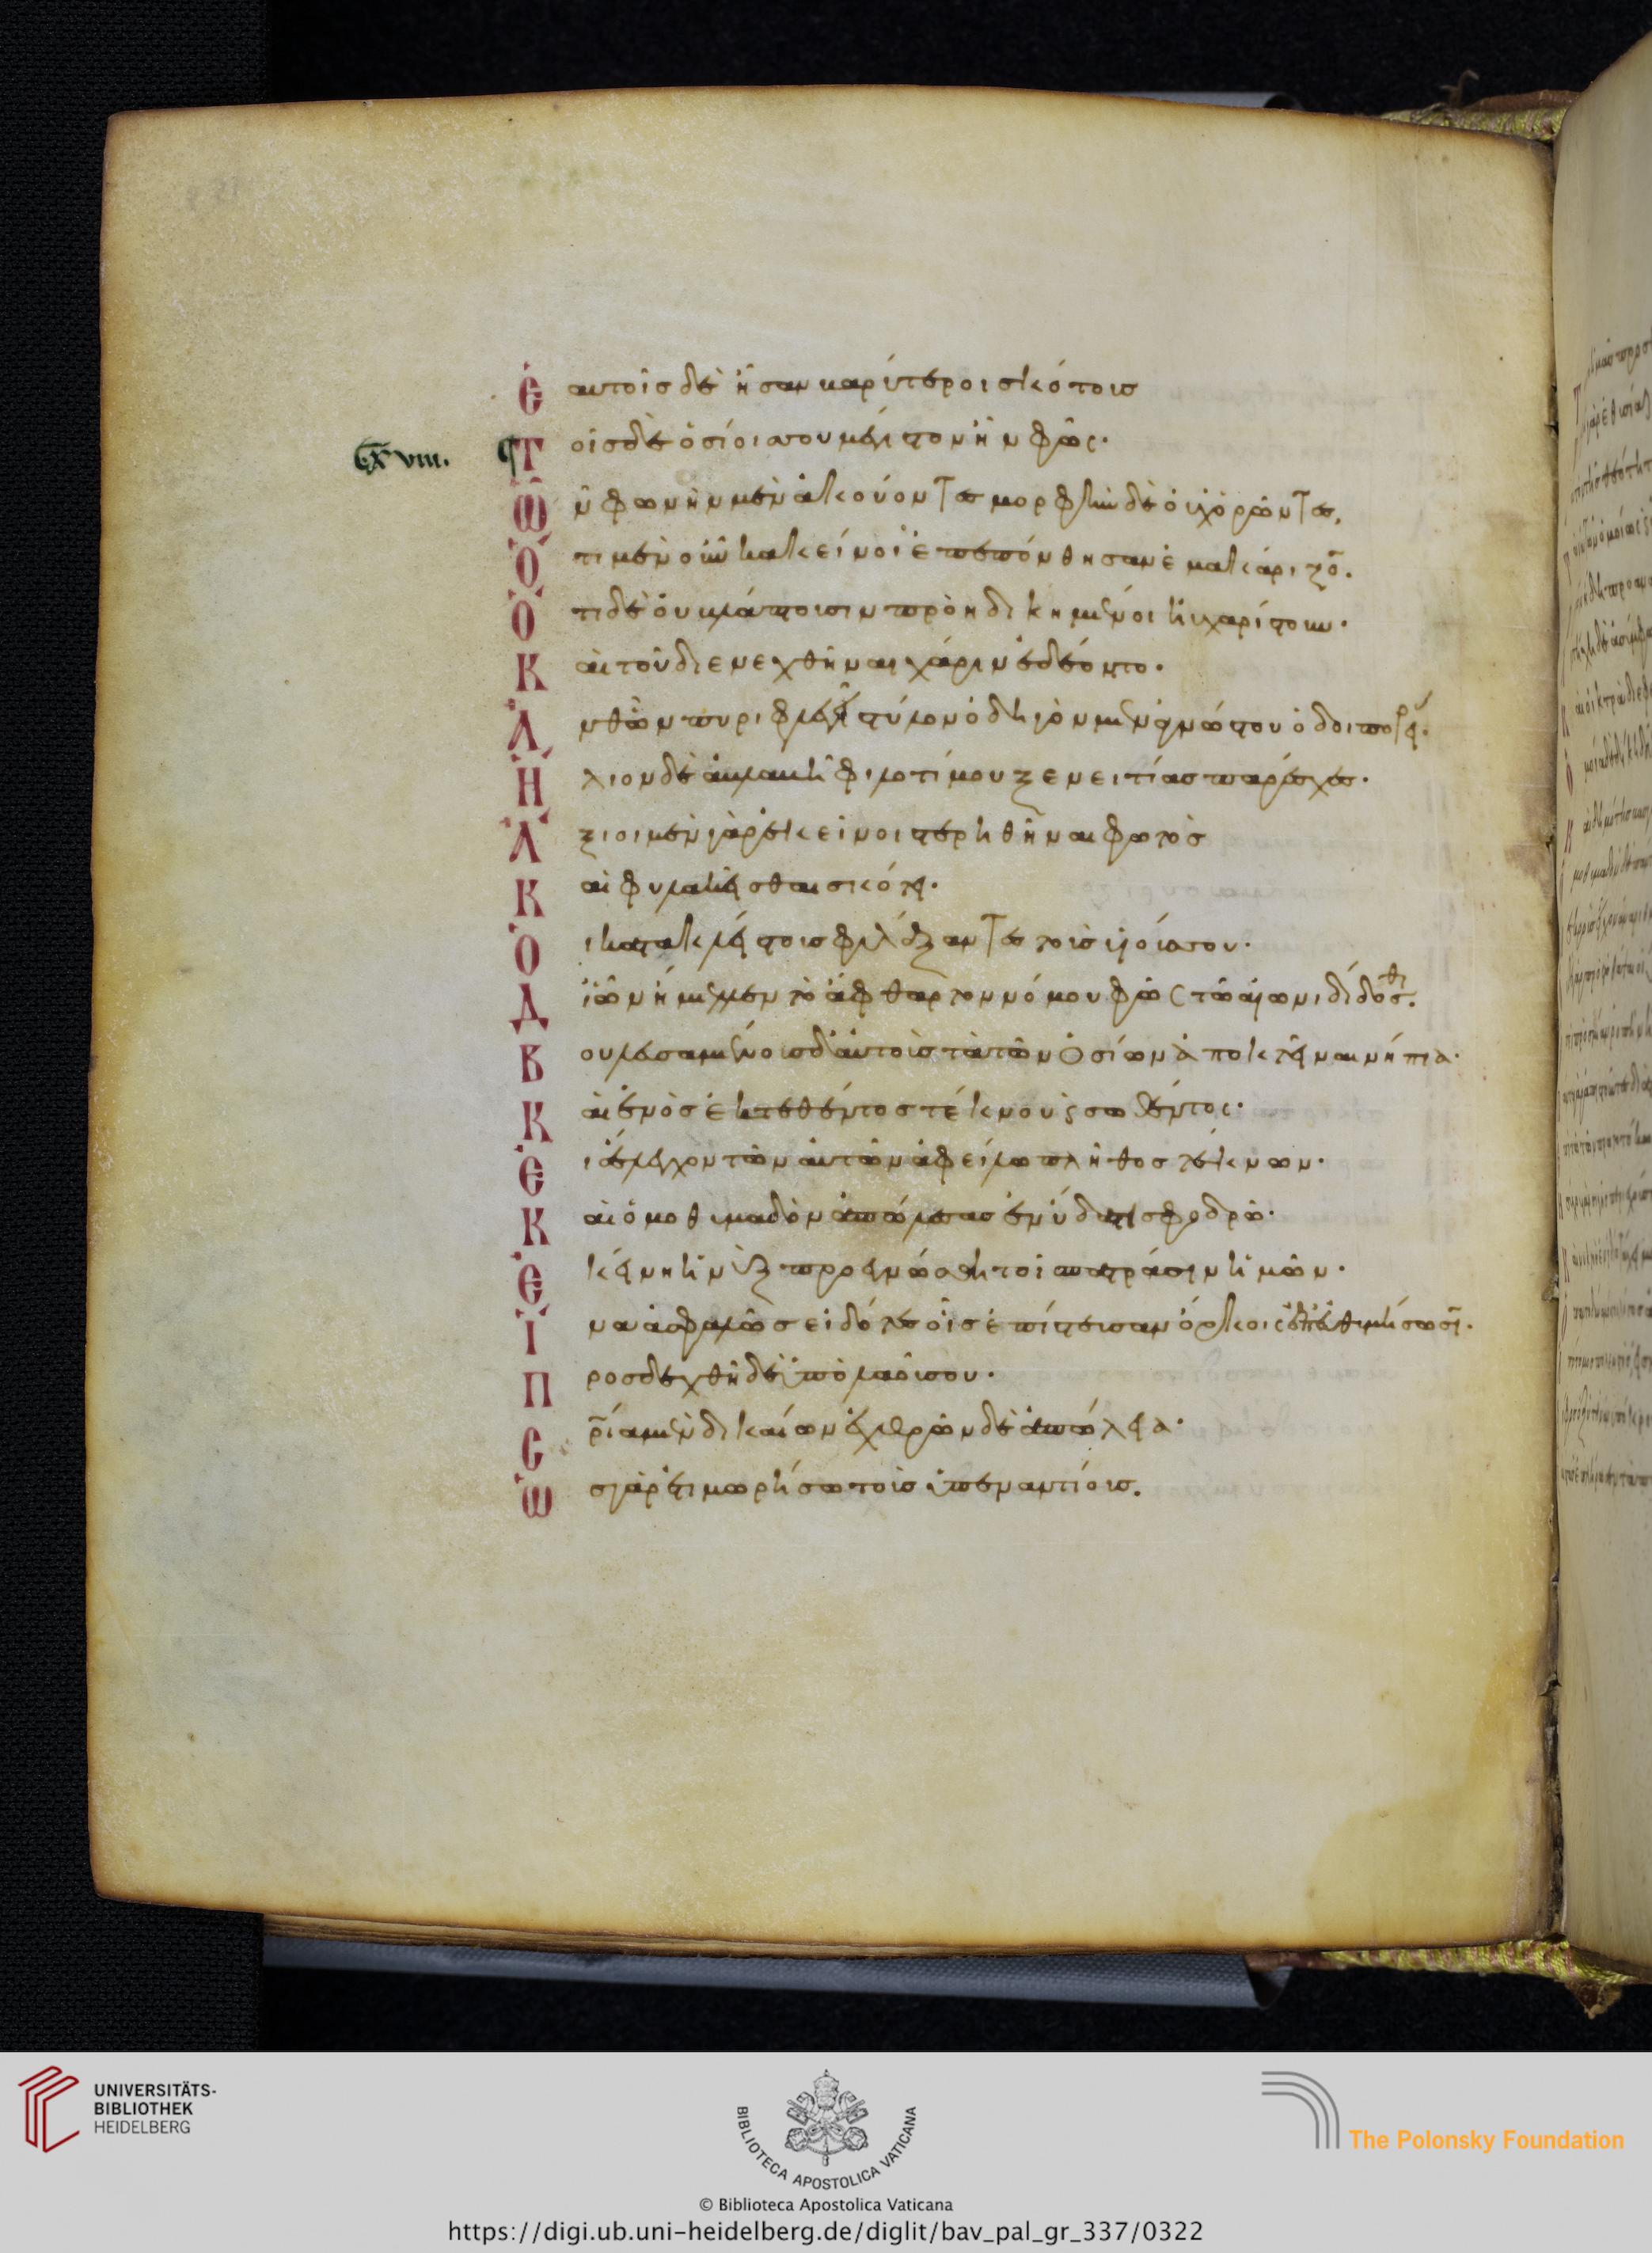 Ἑαυτοῖς δὲ ἦσαν βαρύτεροι σκότους
Cx̄viii. ¶ Τοῖς δὲ ὁσίοις σου μέγιστον ἦν φῶς·
Ὧν φωνὴν μὲν ἀκούοντες μορφὴν δὲ οὐχ ὁρῶντες,
Ὅτι μὲν οὖν κακεῖνοι ἐπεπόνθησαν ἐμακάριζο̄.
Ὅτι δὲ οὐ βλάπτουσιν προηδικημένοι ηὐχαρίστουν·
Καὶ τοῦ διενεχθῆναι χάριν ἐδέοντο·
Ἀνθῶν πυριφλεγῆ στύλον ὁδηγὸν μὲν ἀγνώστου ὁδοιπορίας·
Ἥλιον δὲ ἀβλαβῆ φιλοτίμου ξενειτίας παρέσχες·
Ἄξιοι μὲν γὰρ ἐκεῖνοι στερηθῆναι φωτὸς
Καὶ φυλακίσθαι σκότει·
Οἱ κατακλείστους φυλάξαντες τοὺς υἱούς σου·
Δι ὧν ἤμελλεν τὸ ἄφθαρτον νόμου φῶς τῶ αἰῶνι δίδοσθαι.
Βουλεσαμένους δ αὐτοὺς τὰ τῶν ὁσίων ἀποκτεῖναι νήπια·
Καὶ ἑνὸς ἐκτεθέντος τέκνου ϗ σωθέντος·
Εἰς ἔλεγχον τῶν αὐτῶν ἀφείλω πλῆθος τέκνων·
Καὶ ὁμοθυμαδὸν ἀπώλεσας ἐν ὕδατι σφοδρῶ·
Ἐκείνη ἡ νὺξ προεγνώσθη τοῖς πατράσιν ἡμῶν·
Ἵνα ἀσφαλῶς εἰδότες οἷς ἐπίστευσαν ὅρκοις ἐπευθυμήσωσῑ·
Προσδεχθῆ δὲ ὑπὸ λαοῦ σου·
Σρ̄ία μὲν δικαίων ἐχθρῶν δὲ ἀπώλεια·
Ὡς γὰρ ἐτιμωρήσω τοὺς ὑπεναντίους.
UNIVERSITÄTS-
BIBLIOTHEK
HEIDELBERG
BIBLIOTECA APOSTOLICA VATICANA
The Polonsky Foundation
© Biblioteca Apostolica Vaticana
https://digi.ub.uni-heidelberg.de/diglit/bav_pal_gr_337/0322